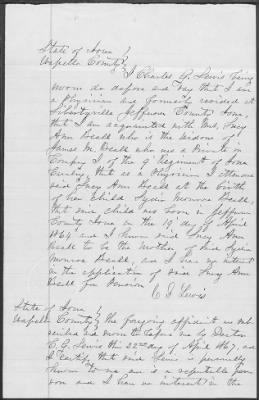 State of Iowa }
Wapello County }
I Charles G. Lewis being
sworn do depose and say that I am
a Physician and formerly resided at
Libertyville Jefferson County Iowa,
that I am acquainted with Mrs. Lucy
Ann Beall who is the widow of
James M. Beall who was a Private in
Compy I of the 9" Regiment of Iowa
Cavalry, that as a Physician I attended
said Lucy Ann Beall at the birth
of her child Lydia Monroe Beall,
that said child was born in Jefferson
County Iowa on the 19" day of April
1864 and I know said Lucy Ann
Beall to be the Mother of said Lydia
Monroe Beall, and I have no interest
in the application of said Lucy Ann
Beall for Pension
C. G. Lewis
State of Iowa }
Wapello County } the foregoing affidavit was sub-
scribed and sworn to before me by Doctor
C. G. Lewis this 22nd day of April 1867, and
I certify that said Lewis is personally
known to me and is a reputable per-
son and I have no interest in the